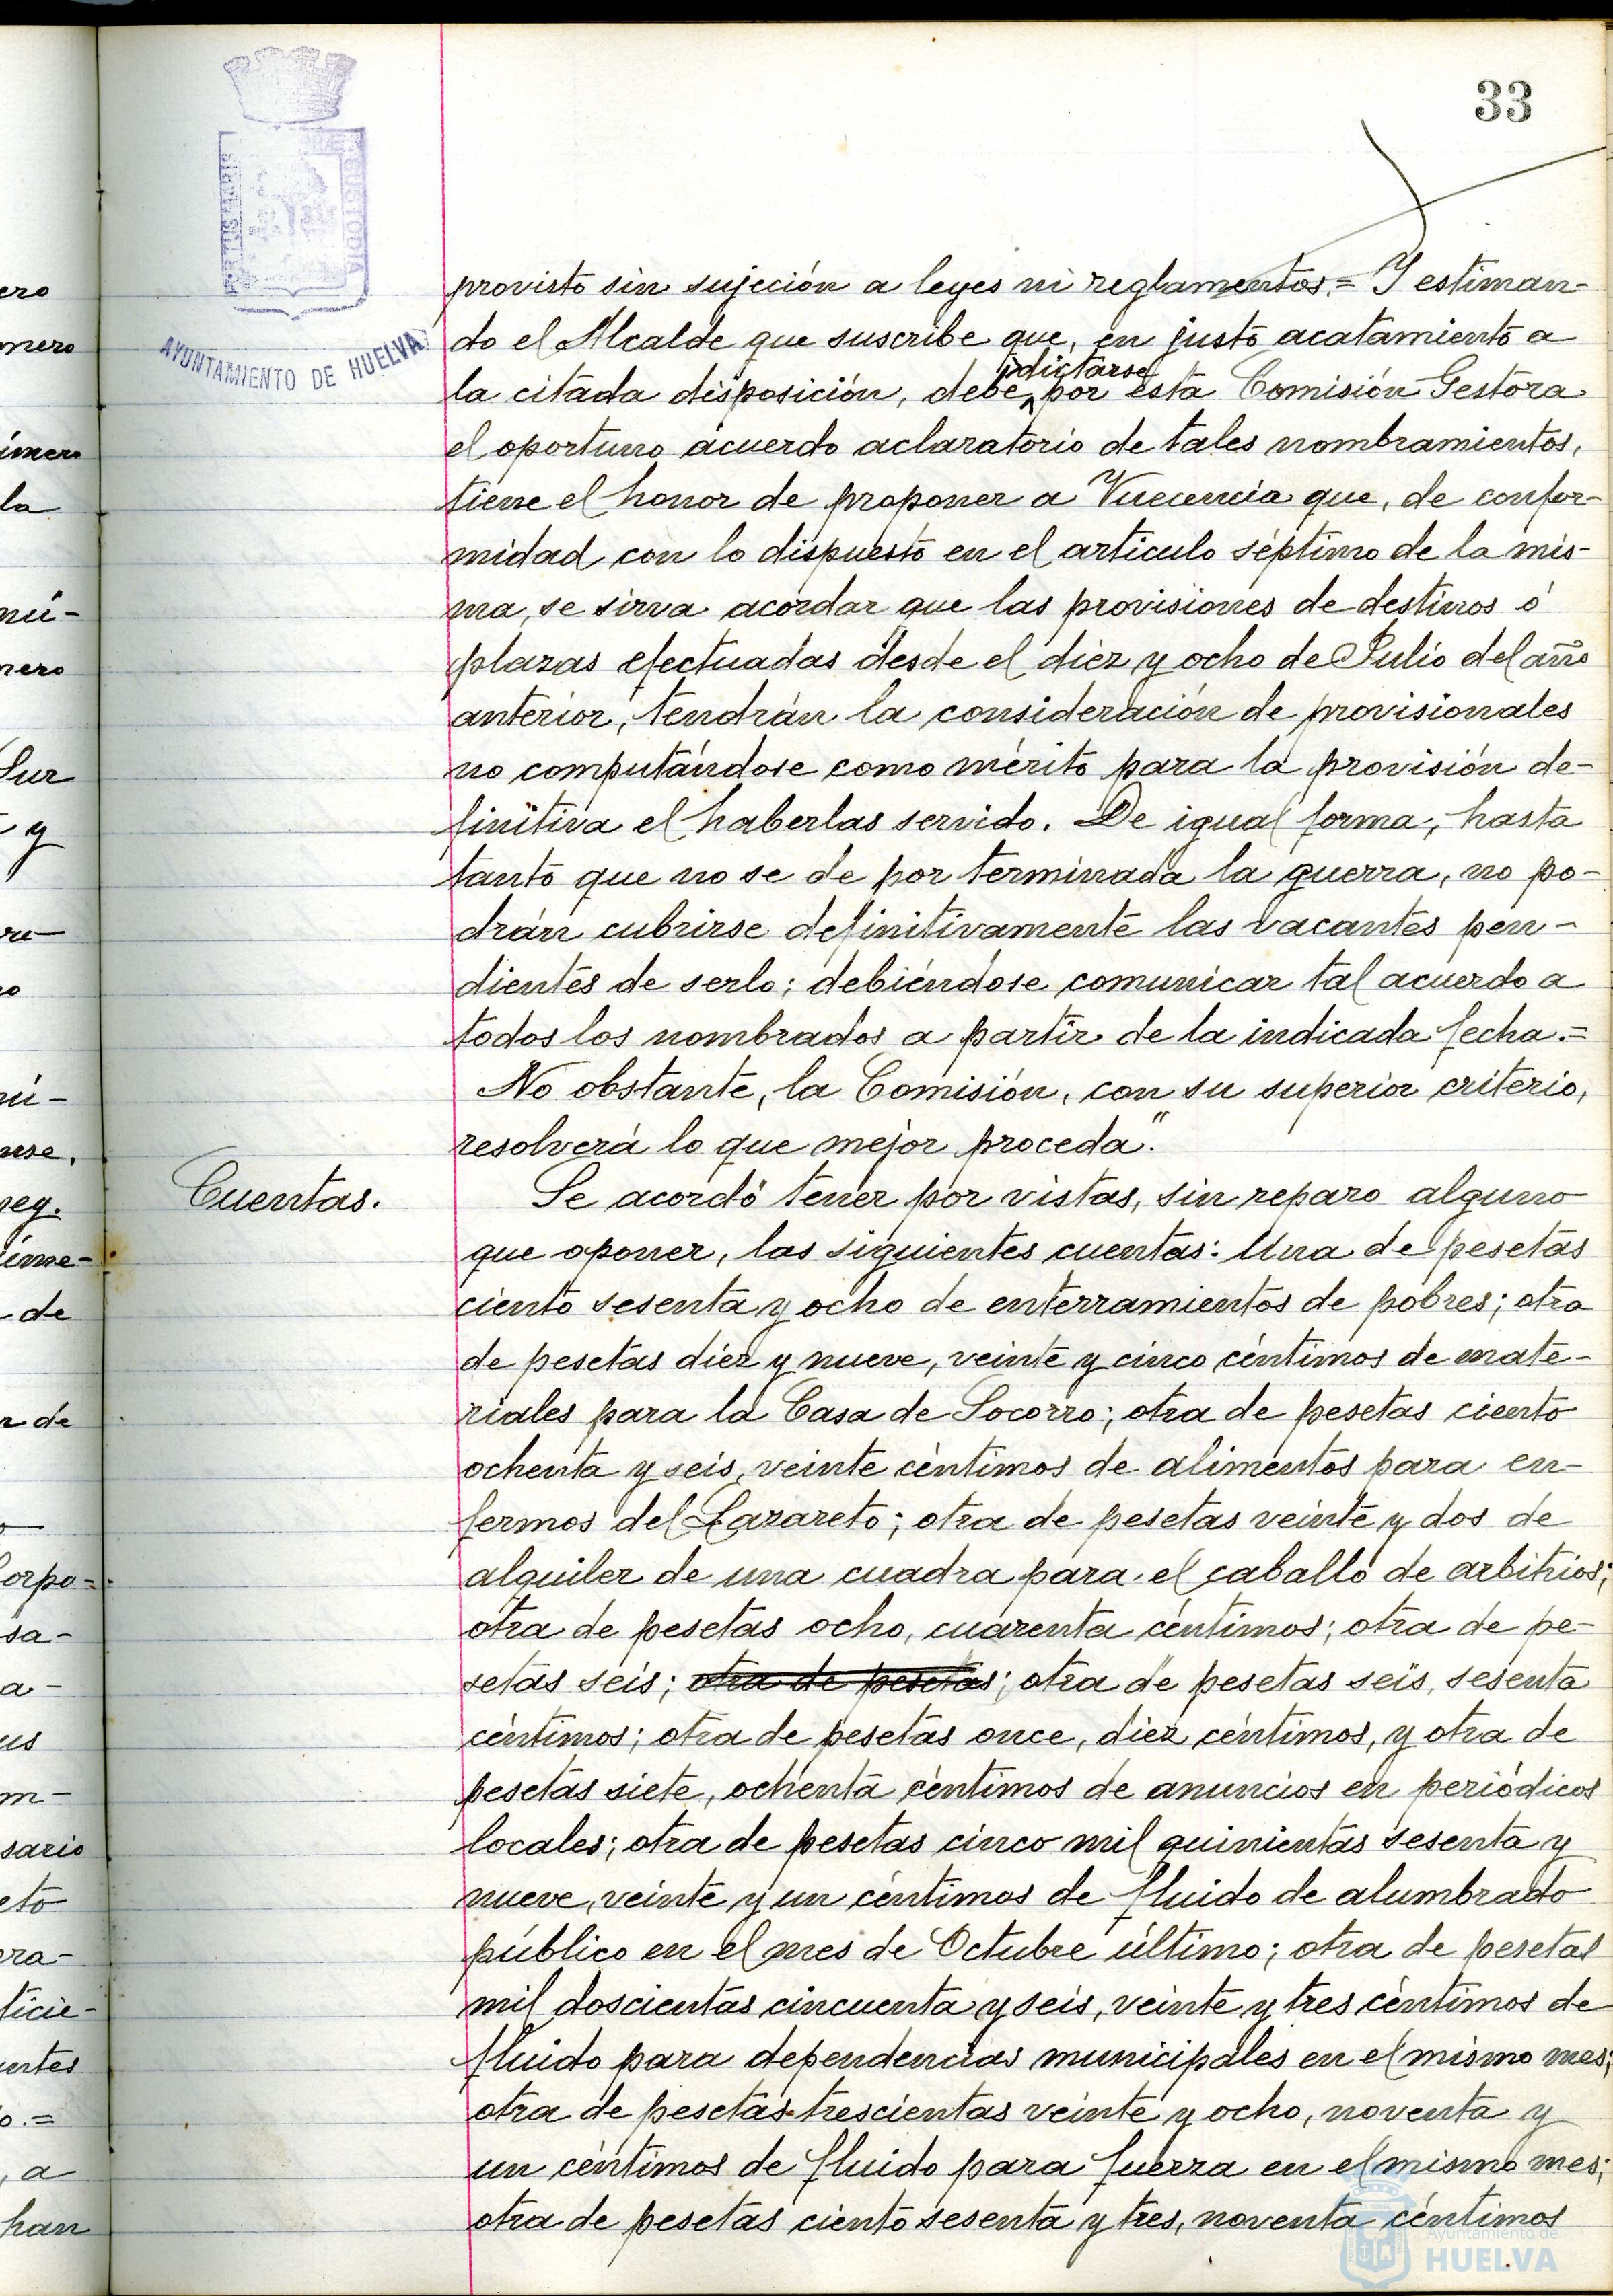 33
AYUNTAMIENTO DE HUELVA
provisto sin sujeción a leyes ni reglamentos.= Y estiman-
do el Alcalde que suscribe que, en justo acatamiento a
la citada disposición, debe dictarse por esta Comisión Gestora
el oportuno acuerdo aclaratorio de tales nombramientos,
tiene el honor de proponer a Vuecencia que, de confor-
midad con lo dispuesto en el artículo séptimo de la mis-
ma, se sirva acordar que las provisiones de destinos ó
plazas efectuadas desde el diez y ocho de Julio del año
anterior, tendrán la consideración de provisionales
no computándose como mérito para la provisión de-
finitiva el haberlas servido. De igual forma, hasta
tanto que no se de por terminada la guerra, no po-
drán cubrirse definitivamente las vacantes pen-
dientes de serlo; debiéndose comunicar tal acuerdo a
todos los nombrados a partir de la indicada fecha.=
No obstante, la Comisión, con su superior criterio,
resolverá lo que mejor proceda".
Cuentas.
Se acordó tener por vistas, sin reparo alguno
que oponer, las siguientes cuentas: Una de pesetas
ciento sesenta y ocho de enterramientos de pobres; otra
de pesetas diez y nueve, veinte y cinco céntimos de mate-
riales para la Casa de Socorro; otra de pesetas ciento
ochenta y seis, veinte céntimos de alimentos para en-
fermos del Lazareto; otra de pesetas veinte y dos de
alquiler de una cuadra para el caballo de arbitrios;
otra de pesetas ocho, cuarenta céntimos; otra de pe-
setas seis; otra de pesetas; otra de pesetas seis, sesenta
céntimos; otra de pesetas once, diez céntimos, y otra de
pesetas siete, ochenta céntimos de anuncios en periódicos
locales; otra de pesetas cinco mil quinientas sesenta y
nueve, veinte y un céntimos de fluido de alumbrado
público en el mes de Octubre último; otra de pesetas
mil doscientas cincuenta y seis, veinte y tres céntimos de
fluido para dependencias municipales en el mismo mes;
otra de pesetas trescientas veinte y ocho, noventa y
un céntimos de fluido para fuerza en el mismo mes;
otra de pesetas ciento sesenta y tres, noventa céntimos
Ayuntamiento de
HUELVA